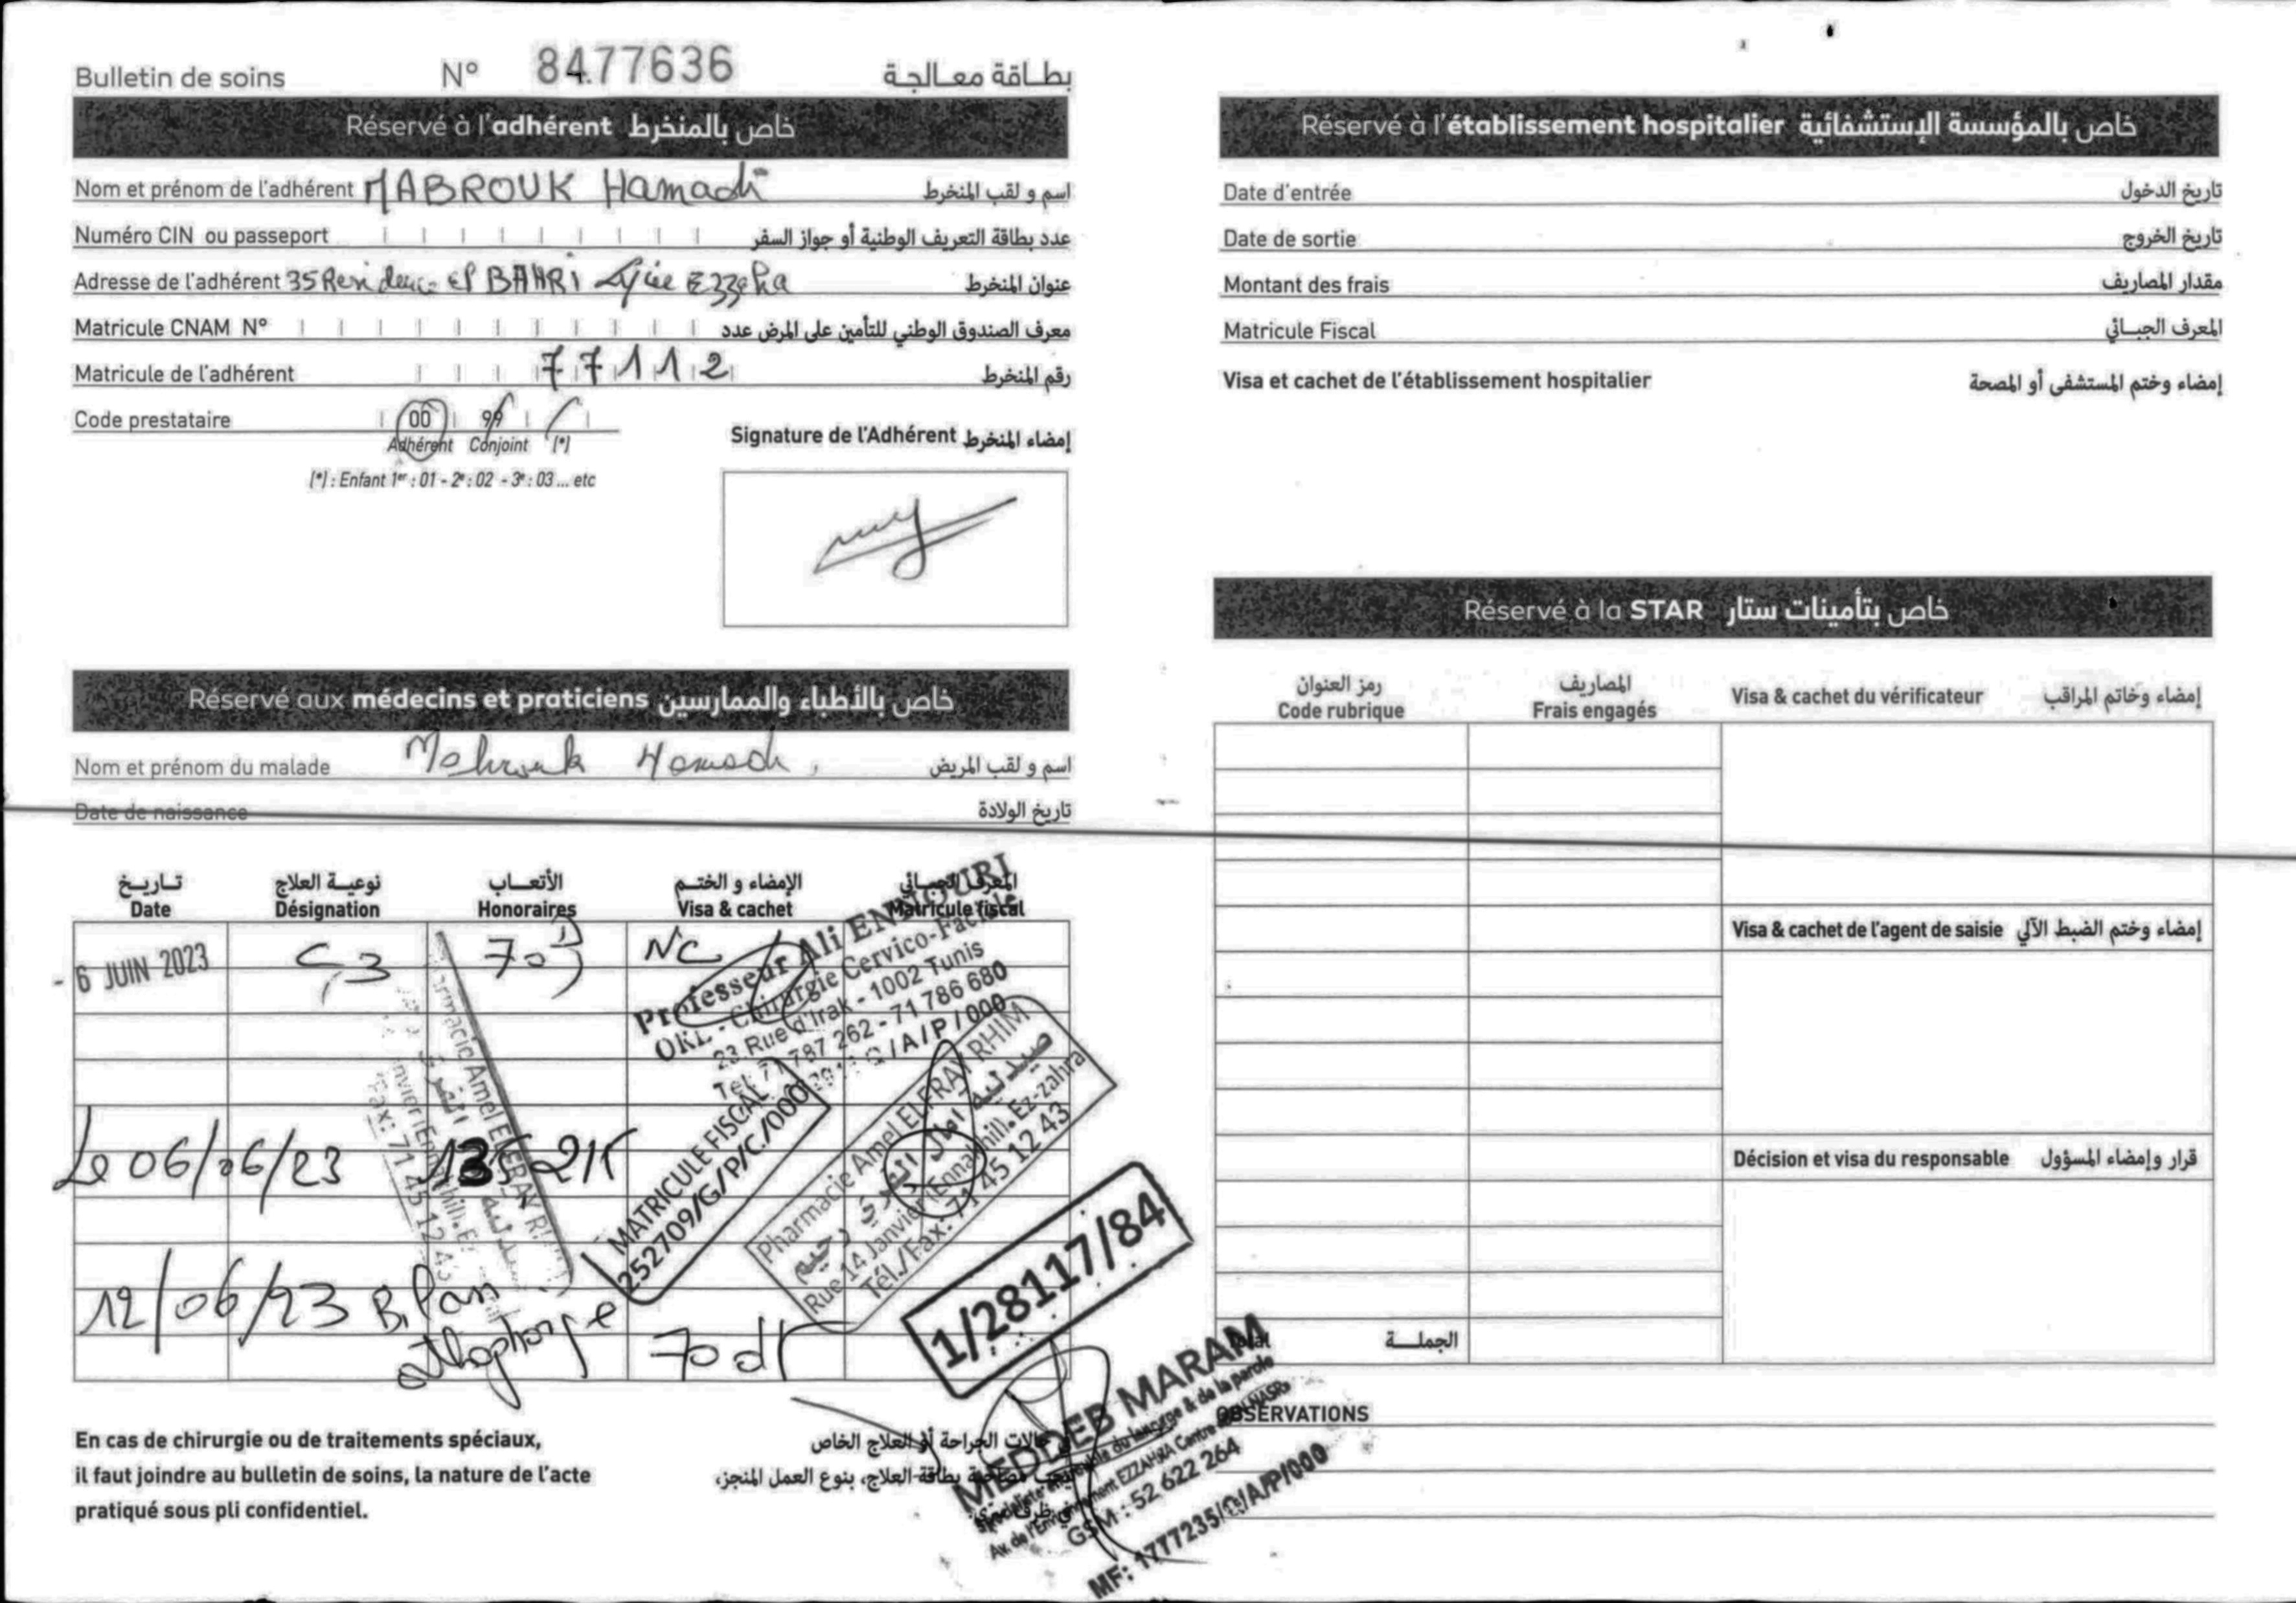 Bulletin de soins N° 8477636 بطاقة معالجة
Réservé à l'adhérent خاص بالمنخرط
Nom et prénom de l'adhérent MABROUK Hamadi اسم و لقب المنخرط
Numéro CIN ou passeport عدد بطاقة التعريف الوطنية أو جواز السفر
Adresse de l'adhérent 35 Residence El BAHRI Lycée Ezzahra عنوان المنخرط
Matricule CNAM N° معرف الصندوق الوطني للتأمين على المرض عدد
Matricule de l'adhérent 77112 رقم المنخرط
Code prestataire 00 99
Adhérent Conjoint (*)
(*) : Enfant 1er : 01 - 2e : 02 - 3e : 03 ... etc
Signature de l'Adhérent إمضاء المنخرط
Réservé aux médecins et praticiens خاص بالأطباء والممارسين
Nom et prénom du malade Mabrouk Hamadi اسم و لقب المريض
Date de naissance تاريخ الولادة
تاريخ نوعية العلاج الأتعاب الإمضاء و الختم المعرف الجبائي
Date Désignation Honoraires Visa & cachet Matricule fiscal
- 6 JUIN 2023 C3 70 NC
Professeur Ali ENNOURI
ORL - Chirurgie Cervico-Faciale
23 Rue d'Irak - 1002 Tunis
Tél 71 787 262 - 71 786 680
/A/P/000
Le 06/06/23
MATRICULE FISCAL
252709/G/P/C/000
Pharmacie Amel EL FRAY RHIM
صيدلية امال الفري رحيم
Rue 14 Janvier (Ennakhill). Ez-zahra
Tél./Fax: 71 45 12 43
12/06/23 Bilan
orthophonique 70 dt
1/28117/84
MEDDEB MARAM
Av. de l'Environnement EZZAHRA
GSM : 52 622 264
MF: 1777235/Q/A/P/000
En cas de chirurgie ou de traitements spéciaux,
il faut joindre au bulletin de soins, la nature de l'acte
pratiqué sous pli confidentiel.
في حالات الجراحة أو العلاج الخاص
يجب مصاحبة بطاقة العلاج، بنوع العمل المنجز،
في ظرف سري.
Réservé à l'établissement hospitalier خاص بالمؤسسة الإستشفائية
Date d'entrée تاريخ الدخول
Date de sortie تاريخ الخروج
Montant des frais مقدار المصاريف
Matricule Fiscal المعرف الجبائي
Visa et cachet de l'établissement hospitalier إمضاء وختم المستشفى أو المصحة
Réservé à la STAR خاص بتأمينات ستار
رمز العنوان المصاريف
Code rubrique Frais engagés Visa & cachet du vérificateur إمضاء وخاتم المراقب
Visa & cachet de l'agent de saisie إمضاء وختم الضبط الآلي
Décision et visa du responsable قرار وإمضاء المسؤول
Total الجملة
OBSERVATIONS